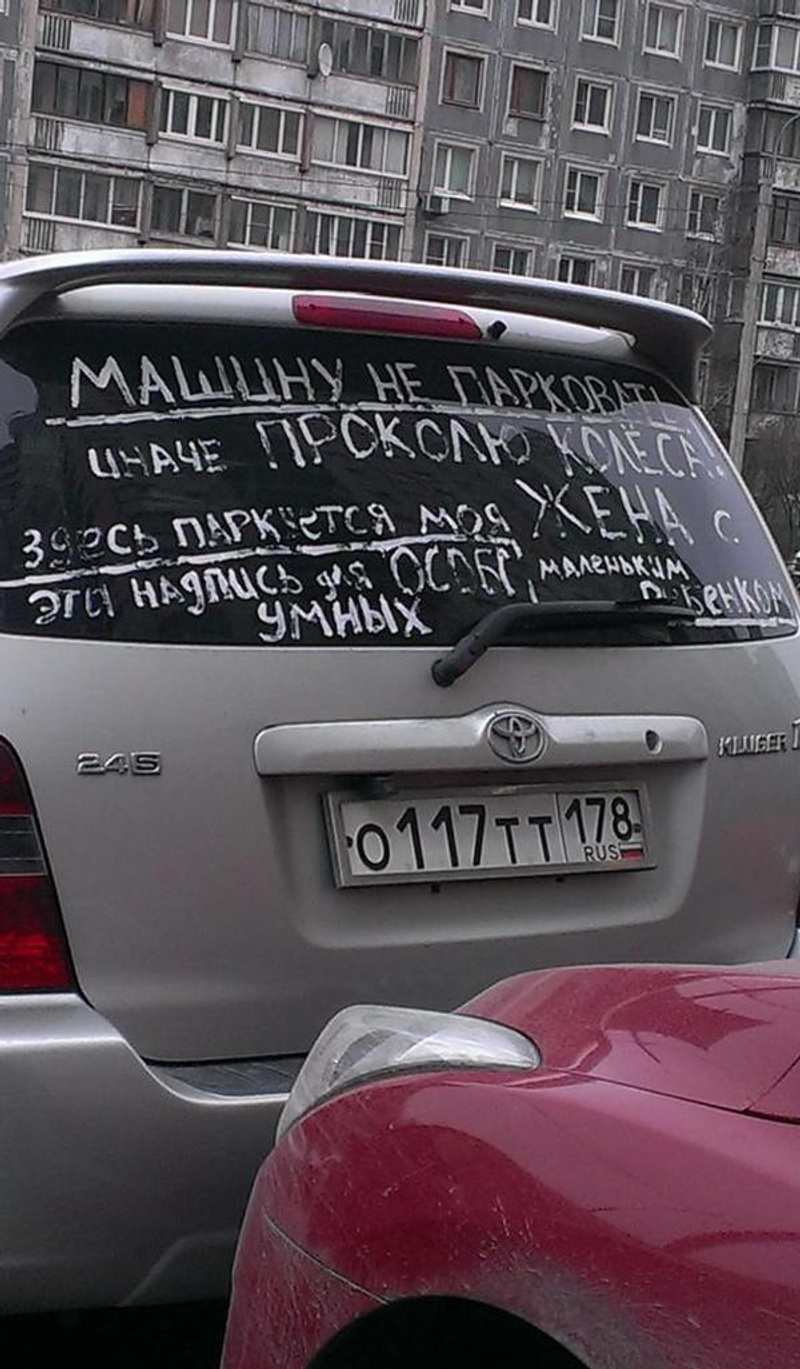 МАШИНУ НЕ ПАРКОВАТЬ!
ИНАЧЕ ПРОКОЛЮ КОЛЁСА!
здесь ПАРКУЕТСЯ МОЯ ЖЕНА с
маленьким
РЕБЕНКОМ
ЭТА НАДПИСЬ для ОСОБО
УМНЫХ
24S
KLUGER
О117ТТ 178
RUS